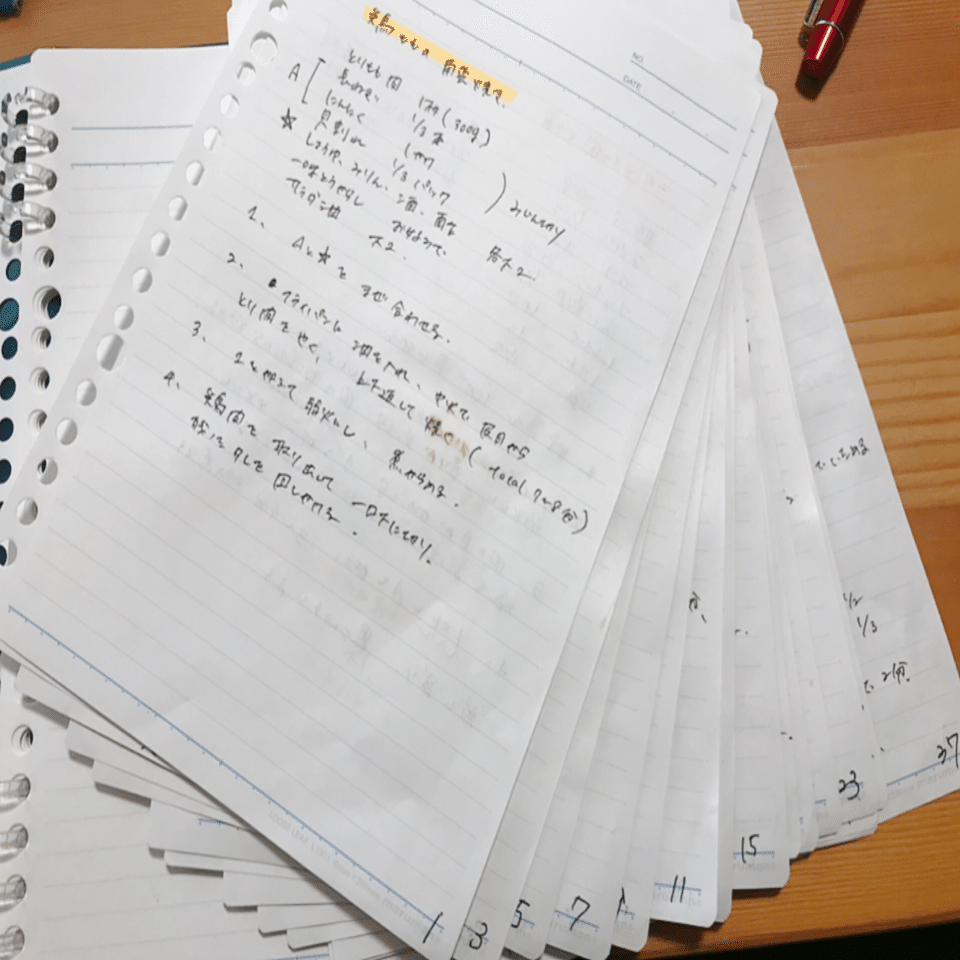 鶏ももの南蛮焼き
NO.
DATE
A
とりもも肉 1枚(300g)
長ねぎ 1/3本
にんにく 1かけ
★ 貝割れ 1/3パック
みじん切り
しょうゆ、みりん、酒、酢 各大2.
一味とうがらし お好みで、
サラダ油 大2.
1、 Aと★をまぜ合わせる.
2、 フライパンに油を入れ、中火で皮目から
とり肉をやく、上下返して焼く(total 7~8分)
3、 1を加えて弱火にし、煮からめる.
4、 鶏肉を取り出して一口大に切り、
残った汁を回しかける.
1
3
5
7
11
15
23
37
1/2
1/3
で 2分、